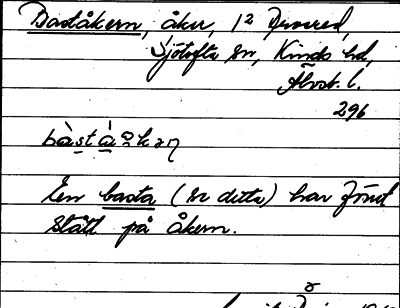 Baståkern, åker, 1² Djurered,
Sjötofta sn, Kinds hd,
Älvsb. l.
296
En basta (se detta) har förut
stått på åkern.